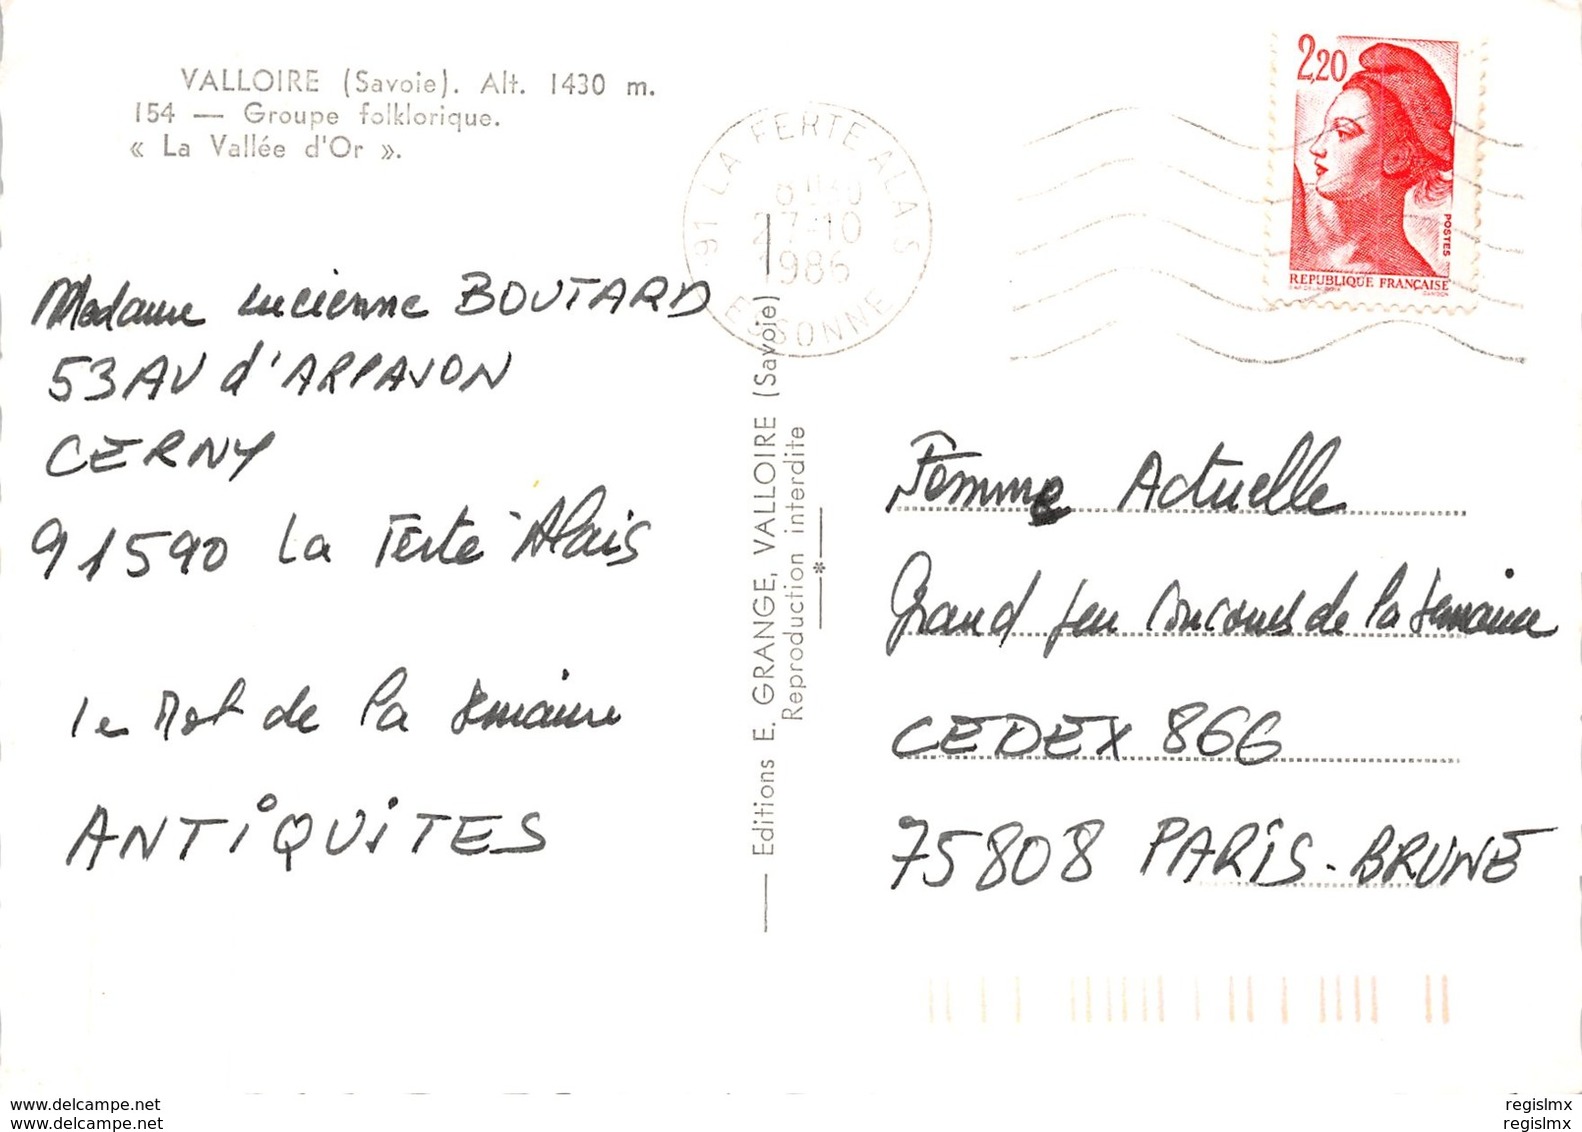 VALLOIRE (Savoie). Alt. 1430 m.
154 — Groupe folklorique.
« La Vallée d'Or ».
91 LA FERTE ALAIS
27-10
1986
ESSONNE
2,20
POSTES
REPUBLIQUE FRANÇAISE
Madame Lucienne BOUTARD
53 AV d'ARPAJON
CERNY
91590 La Ferté Alais
le Mot de la semaine
ANTIQUITES
Editions E. GRANGE, VALLOIRE (Savoie)
Reproduction interdite
Femme Actuelle
Grand Jeu Concours de la Semaine
CEDEX 866
75808 PARIS-BRUNE
www.delcampe.net
www.delcampe.net
regislmx
regislmx